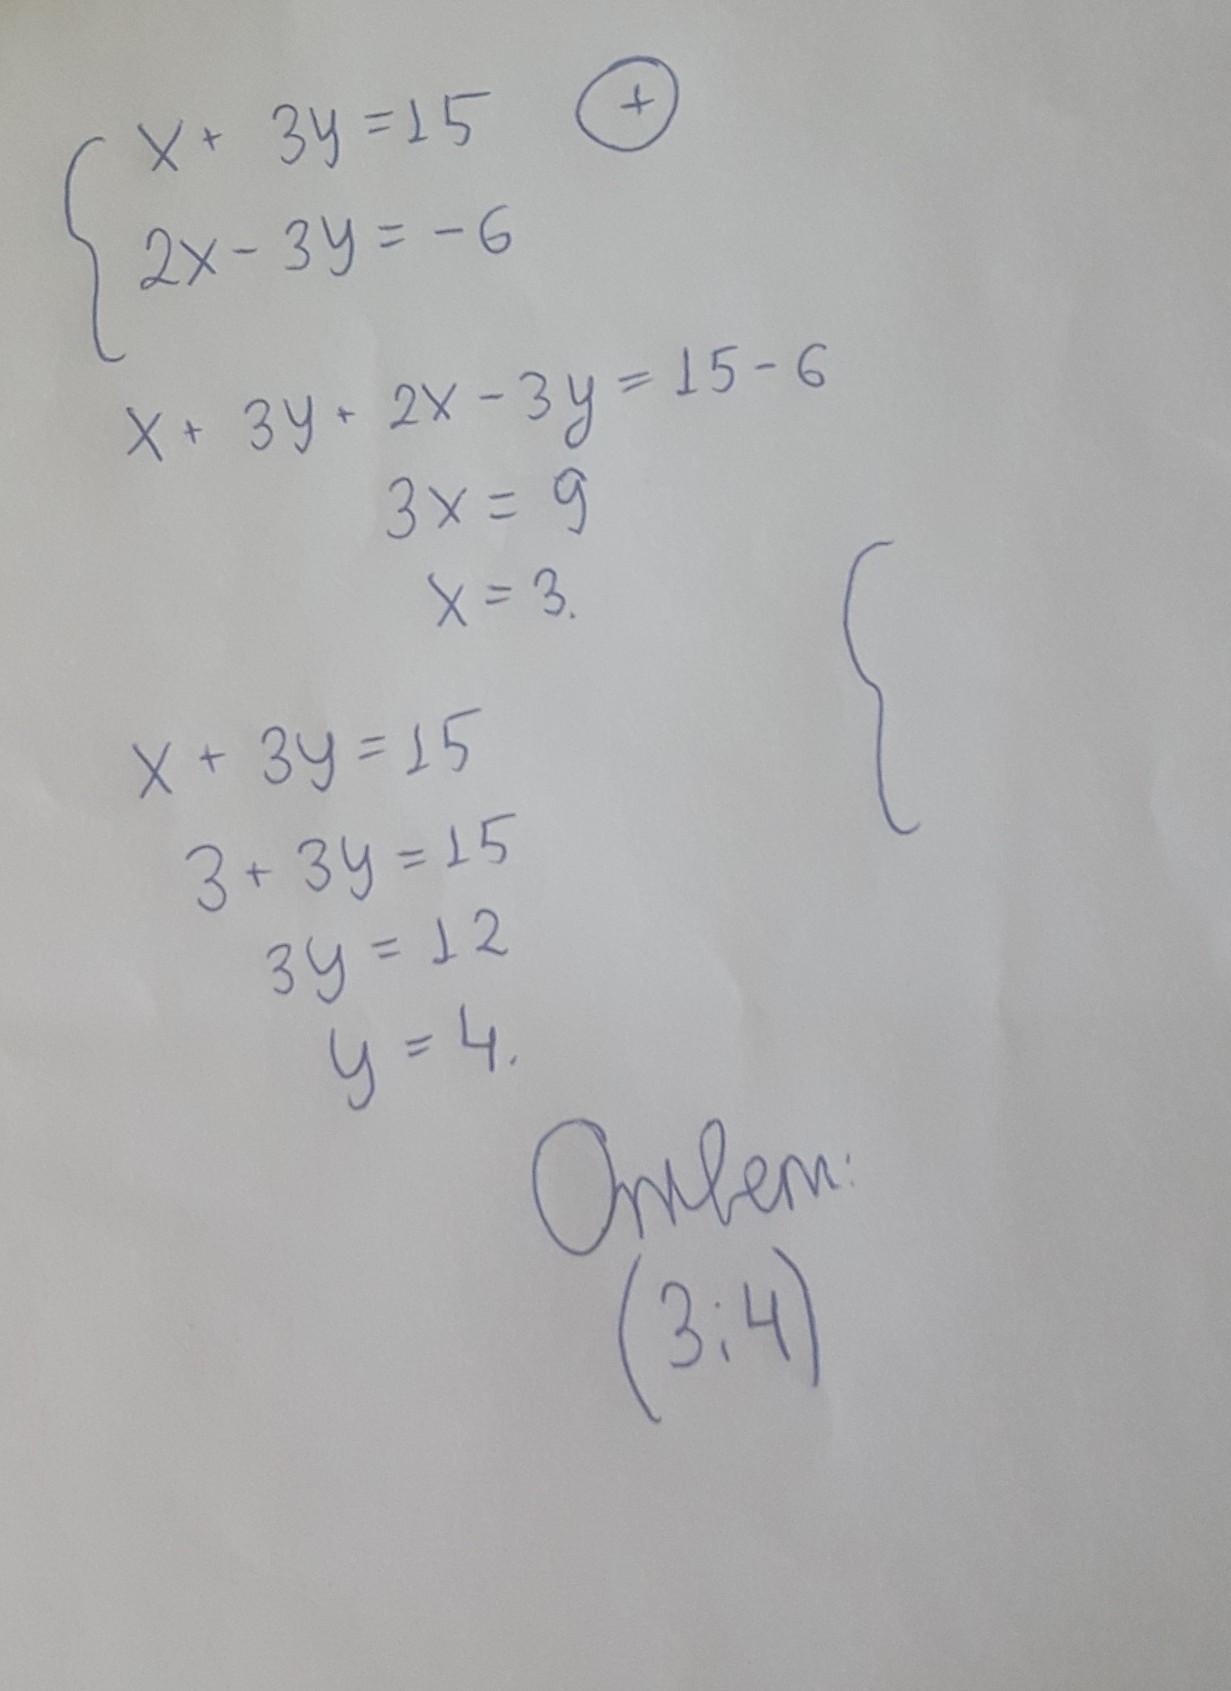 x + 3y = 15 +
2x - 3y = -6
x + 3y + 2x - 3y = 15 - 6
3x = 9
x = 3.
x + 3y = 15
3 + 3y = 15
3y = 12
y = 4.
Ответ:
(3;4)